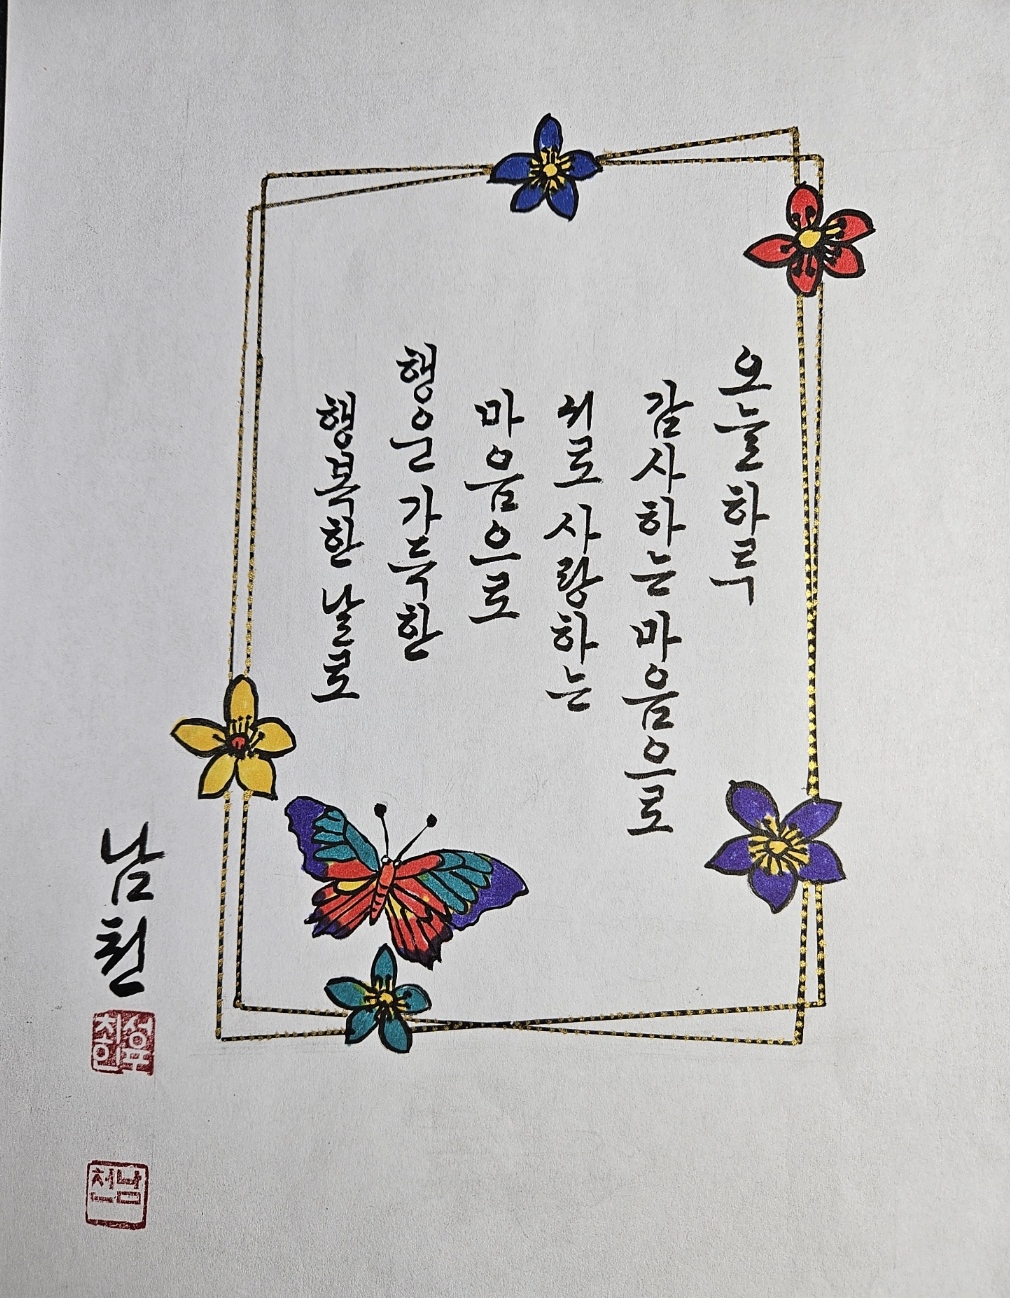 오늘 하루
감사하는 마음으로
서로 사랑하는
마음으로
행운 가득한
행복한 날로
남천
남천